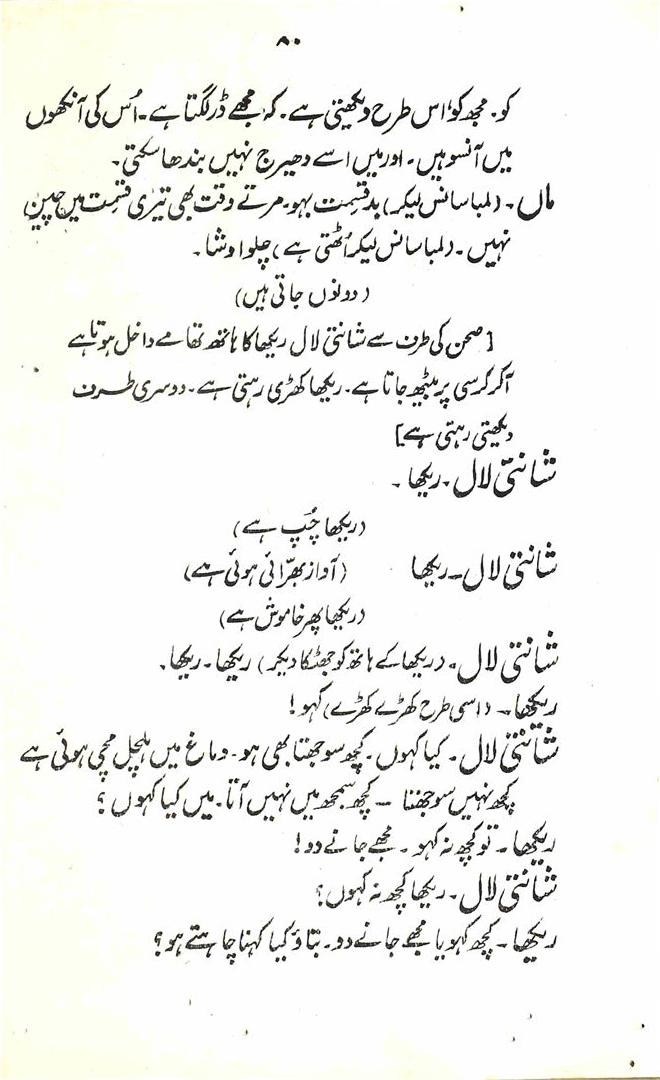 ۸۰
کو۔ مجھ کو اس طرح دیکھتی ہے۔ کہ مجھے ڈر لگتا ہے۔ اُس کی آنکھوں
میں آنسو ہیں۔ اور میں اسے دھیرج نہیں بندھا سکتی۔
ماں۔ (لمبا سانس لیکر) بد قسمت بہو۔ مرتے وقت بھی تیری قسمت میں چین
نہیں۔ (لمبا سانس لیکر اُٹھتی ہے) چلو اوشا۔
(دونوں جاتی ہیں)
[صحن کی طرف سے شانتی لال ریکھا کا ہاتھ تھامے داخل ہوتا ہے
آکر کرسی پر بیٹھ جاتا ہے۔ ریکھا کھڑی رہتی ہے۔ دوسری طرف
دیکھتی رہتی ہے]
شانتی لال۔ ریکھا۔
(ریکھا چُپ ہے)
شانتی لال۔ ریکھا (آواز بھرّائی ہوئی ہے)
(ریکھا پھر خاموش ہے)
شانتی لال۔ (ریکھا کے ہاتھ کو جھٹکا دیکر) ریکھا۔ ریکھا۔
ریکھا۔ (اسی طرح کھڑے کھڑے) کہو!
شانتی لال۔ کیا کہوں۔ کچھ سوجھتا بھی ہو۔ دماغ میں ہلچل مچی ہوئی ہے
کچھ نہیں سوجھتا۔ کچھ سمجھ میں نہیں آتا۔ میں کیا کہوں؟
ریکھا۔ تو کچھ نہ کہو۔ مجھے جانے دو!
شانتی لال۔ ریکھا کچھ نہ کہوں؟
ریکھا۔ کچھ کہو یا مجھے جانے دو۔ بتاؤ کیا کہنا چاہتے ہو؟